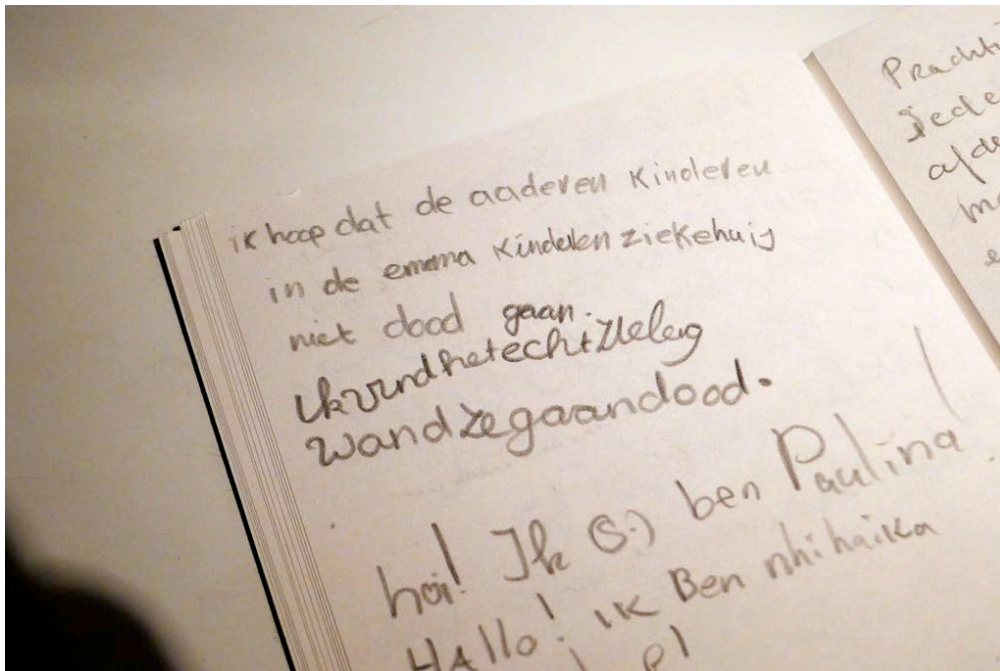 ik hoop dat de aaderen Kinderen
in de emma Kinderen ziekehuis
niet dood gaan.
Ik vind het echt zieleg
wand ze gaan dood.
hoi! Ik (:) ben Paulina
HAllo! iK Ben nhihaika
Prachti
Iede
afde